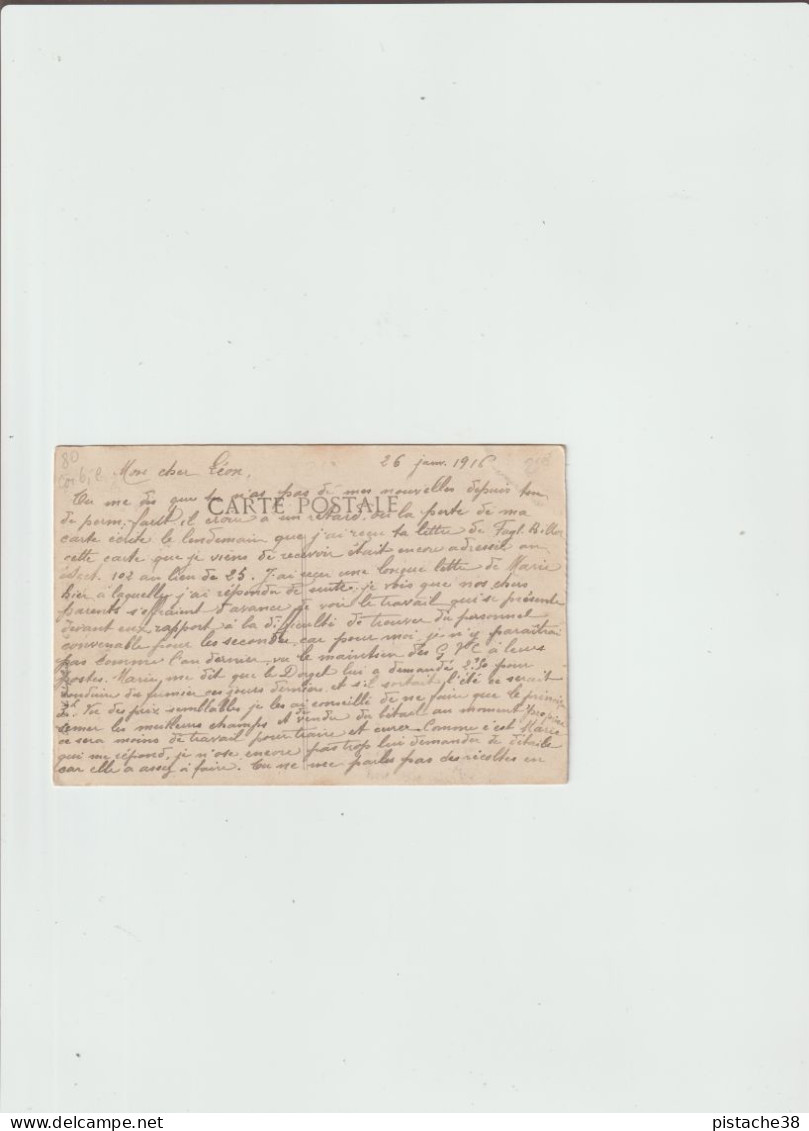 80
Mon cher Léon, 26 janv. 1916
Tu me dis que tu n'as pas de mes nouvelles depuis ton
CARTE POSTALE
de perm. faut il croire à un retard ou la perte de ma
carte écrite le lendemain que j'ai reçu ta lettre de
cette carte que je viens de recevoir était encore adressée au
sect. 102 au lieu de 25. J'ai reçu une longue lettre de Marie
hier à laquelle j'ai répondu de suite. je vois que nos chers
parents s'effraient d'avance de voir le travail qui se présente
devant eux rapport à la difficulté de trouver du personnel
convenable pour les seconder car pour moi je n'y paraîtrai
pas comme l'an dernier vu le maintien des G V C à leurs
postes. Marie me dit que le Doyet lui a demandé 2.50 pour
conduire du fumier ces jours derniers et s'il sortait l'été ce serait
3f. Vu des prix semblables je les ai conseillé de ne faire que le
semer les meilleurs champs et vendre du bétail au moment propice
ce sera moins de travail pour traire et curer. Comme c'est Marie
qui me répond, je n'ose encore pas trop lui demander de détails
car elle a assez à faire. Tu ne me parles pas des récoltes en
pistache38